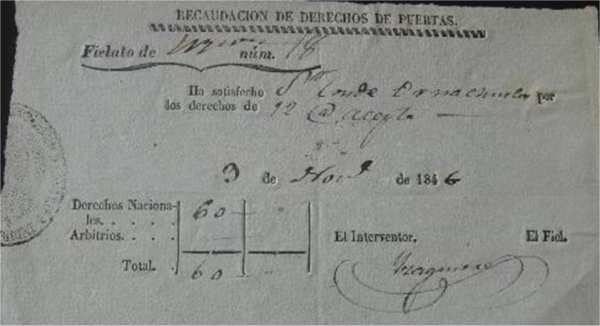 RECAUDACION DE DERECHOS DE PUERTAS.
Fielato de núm. 18
Ha satisfecho Sr Conde Ornachuelos por
los derechos de 12 @ aceyte
3 de Nov. de 1846
Derechos Naciona-
les. . . . . 60
Arbitrios. . . .
Total. . 60
El Interventor. El Fiel.